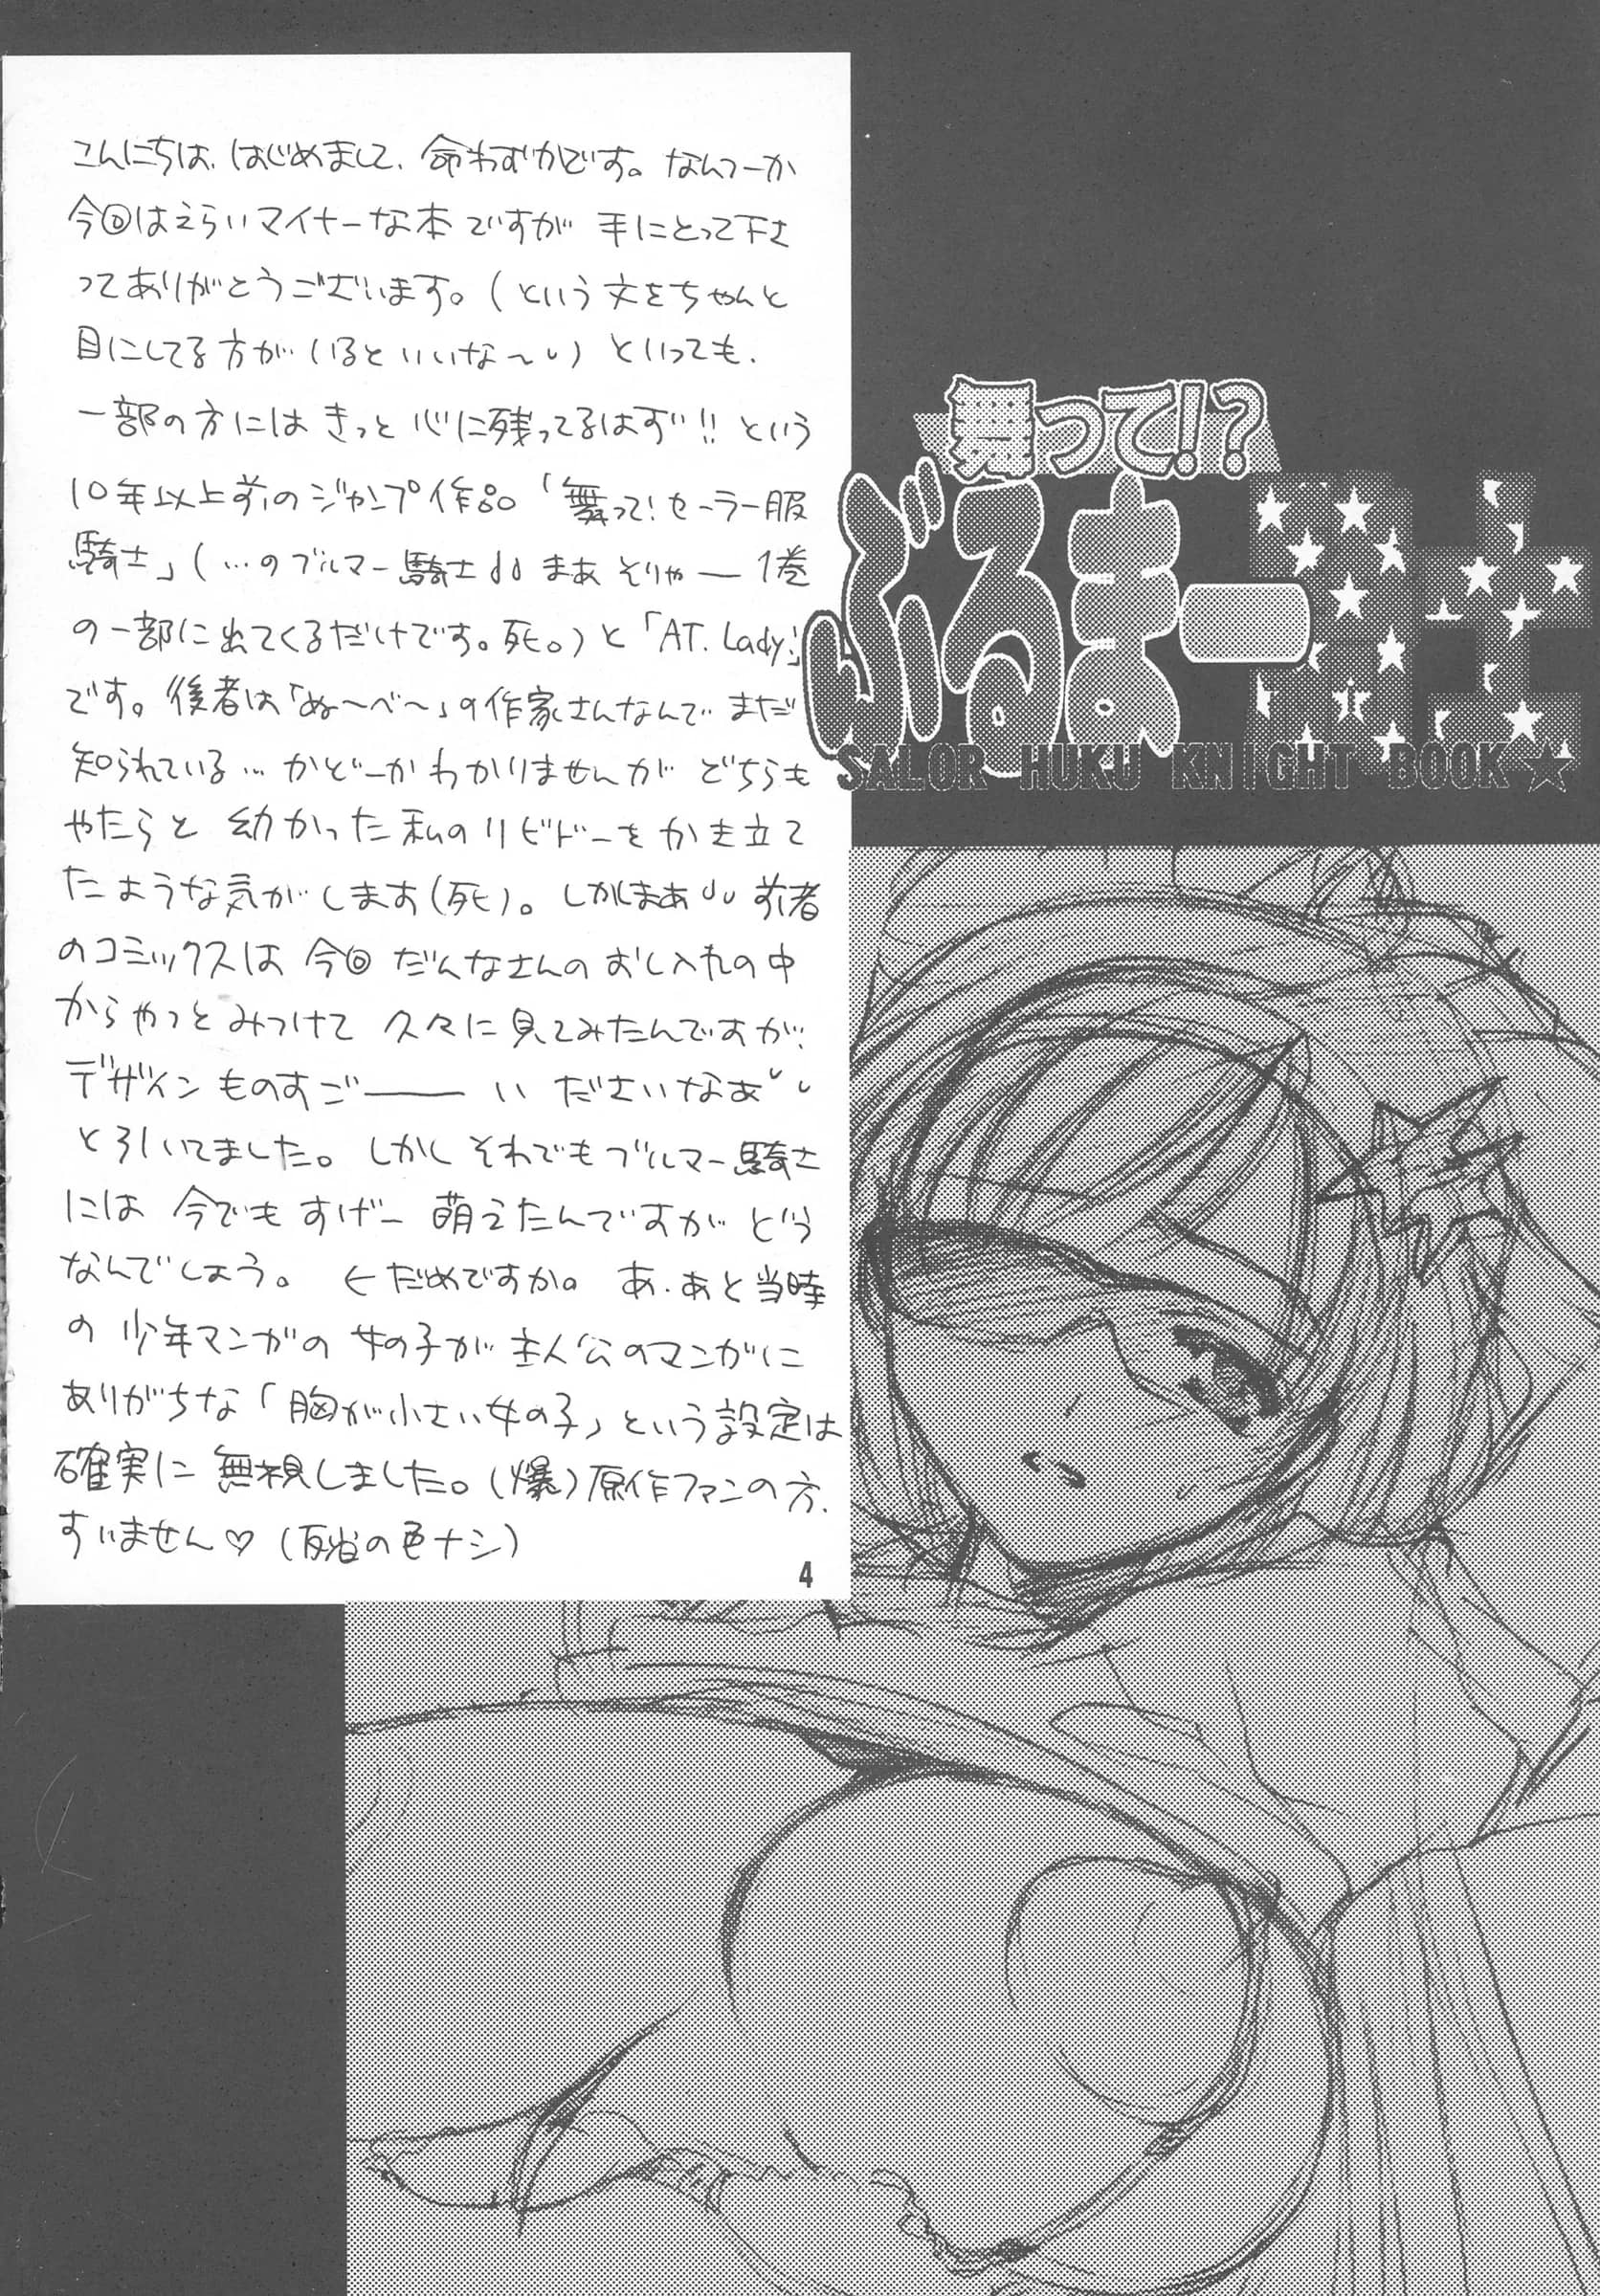 こんにちは、はじめまして、命わずかです。なんつーか
今回はえらいマイナーな本ですが 手にとって下さ
ってありがとうございます。(という文をちゃんと
目にしてる方が いるといいな〜) といっても、
一部の方には きっと 心に残ってるはず!! という
10年以上前のジャンプ作品「舞って!セーラー服
騎士」(…のブルマー騎士 まあ そりゃ― 1巻
の一部に出てくるだけです。死。)と「AT. Lady」
です。後者は「ぬ〜べ〜」の作家さんなんで まだ
知られている…かどーかわかりませんが どちらも
やたらと 幼かった私のリビドーをかき立て
たような気がします(死)。しかしまあ 前者
のコミックスは 今回 だんなさんのおし入れの中
からやっとみつけて 久々に見てみたんですが、
デザインものすご――い ださいなあ
と引いてました。しかし それでもブルマー騎士
には 今でもすげー 萌えたんですが どう
なんでしょう。 ←だめですか。 あ、あと当時
の 少年マンガの 女の子が主人公のマンガに
ありがちな「胸が小さい女の子」という設定は
確実に 無視しました。(爆) 原作ファンの方、
すいません♡ (反省の色ナシ)
4
舞って!?
ぶるまー騎士
SALOR HUKU KNIGHT BOOK☆